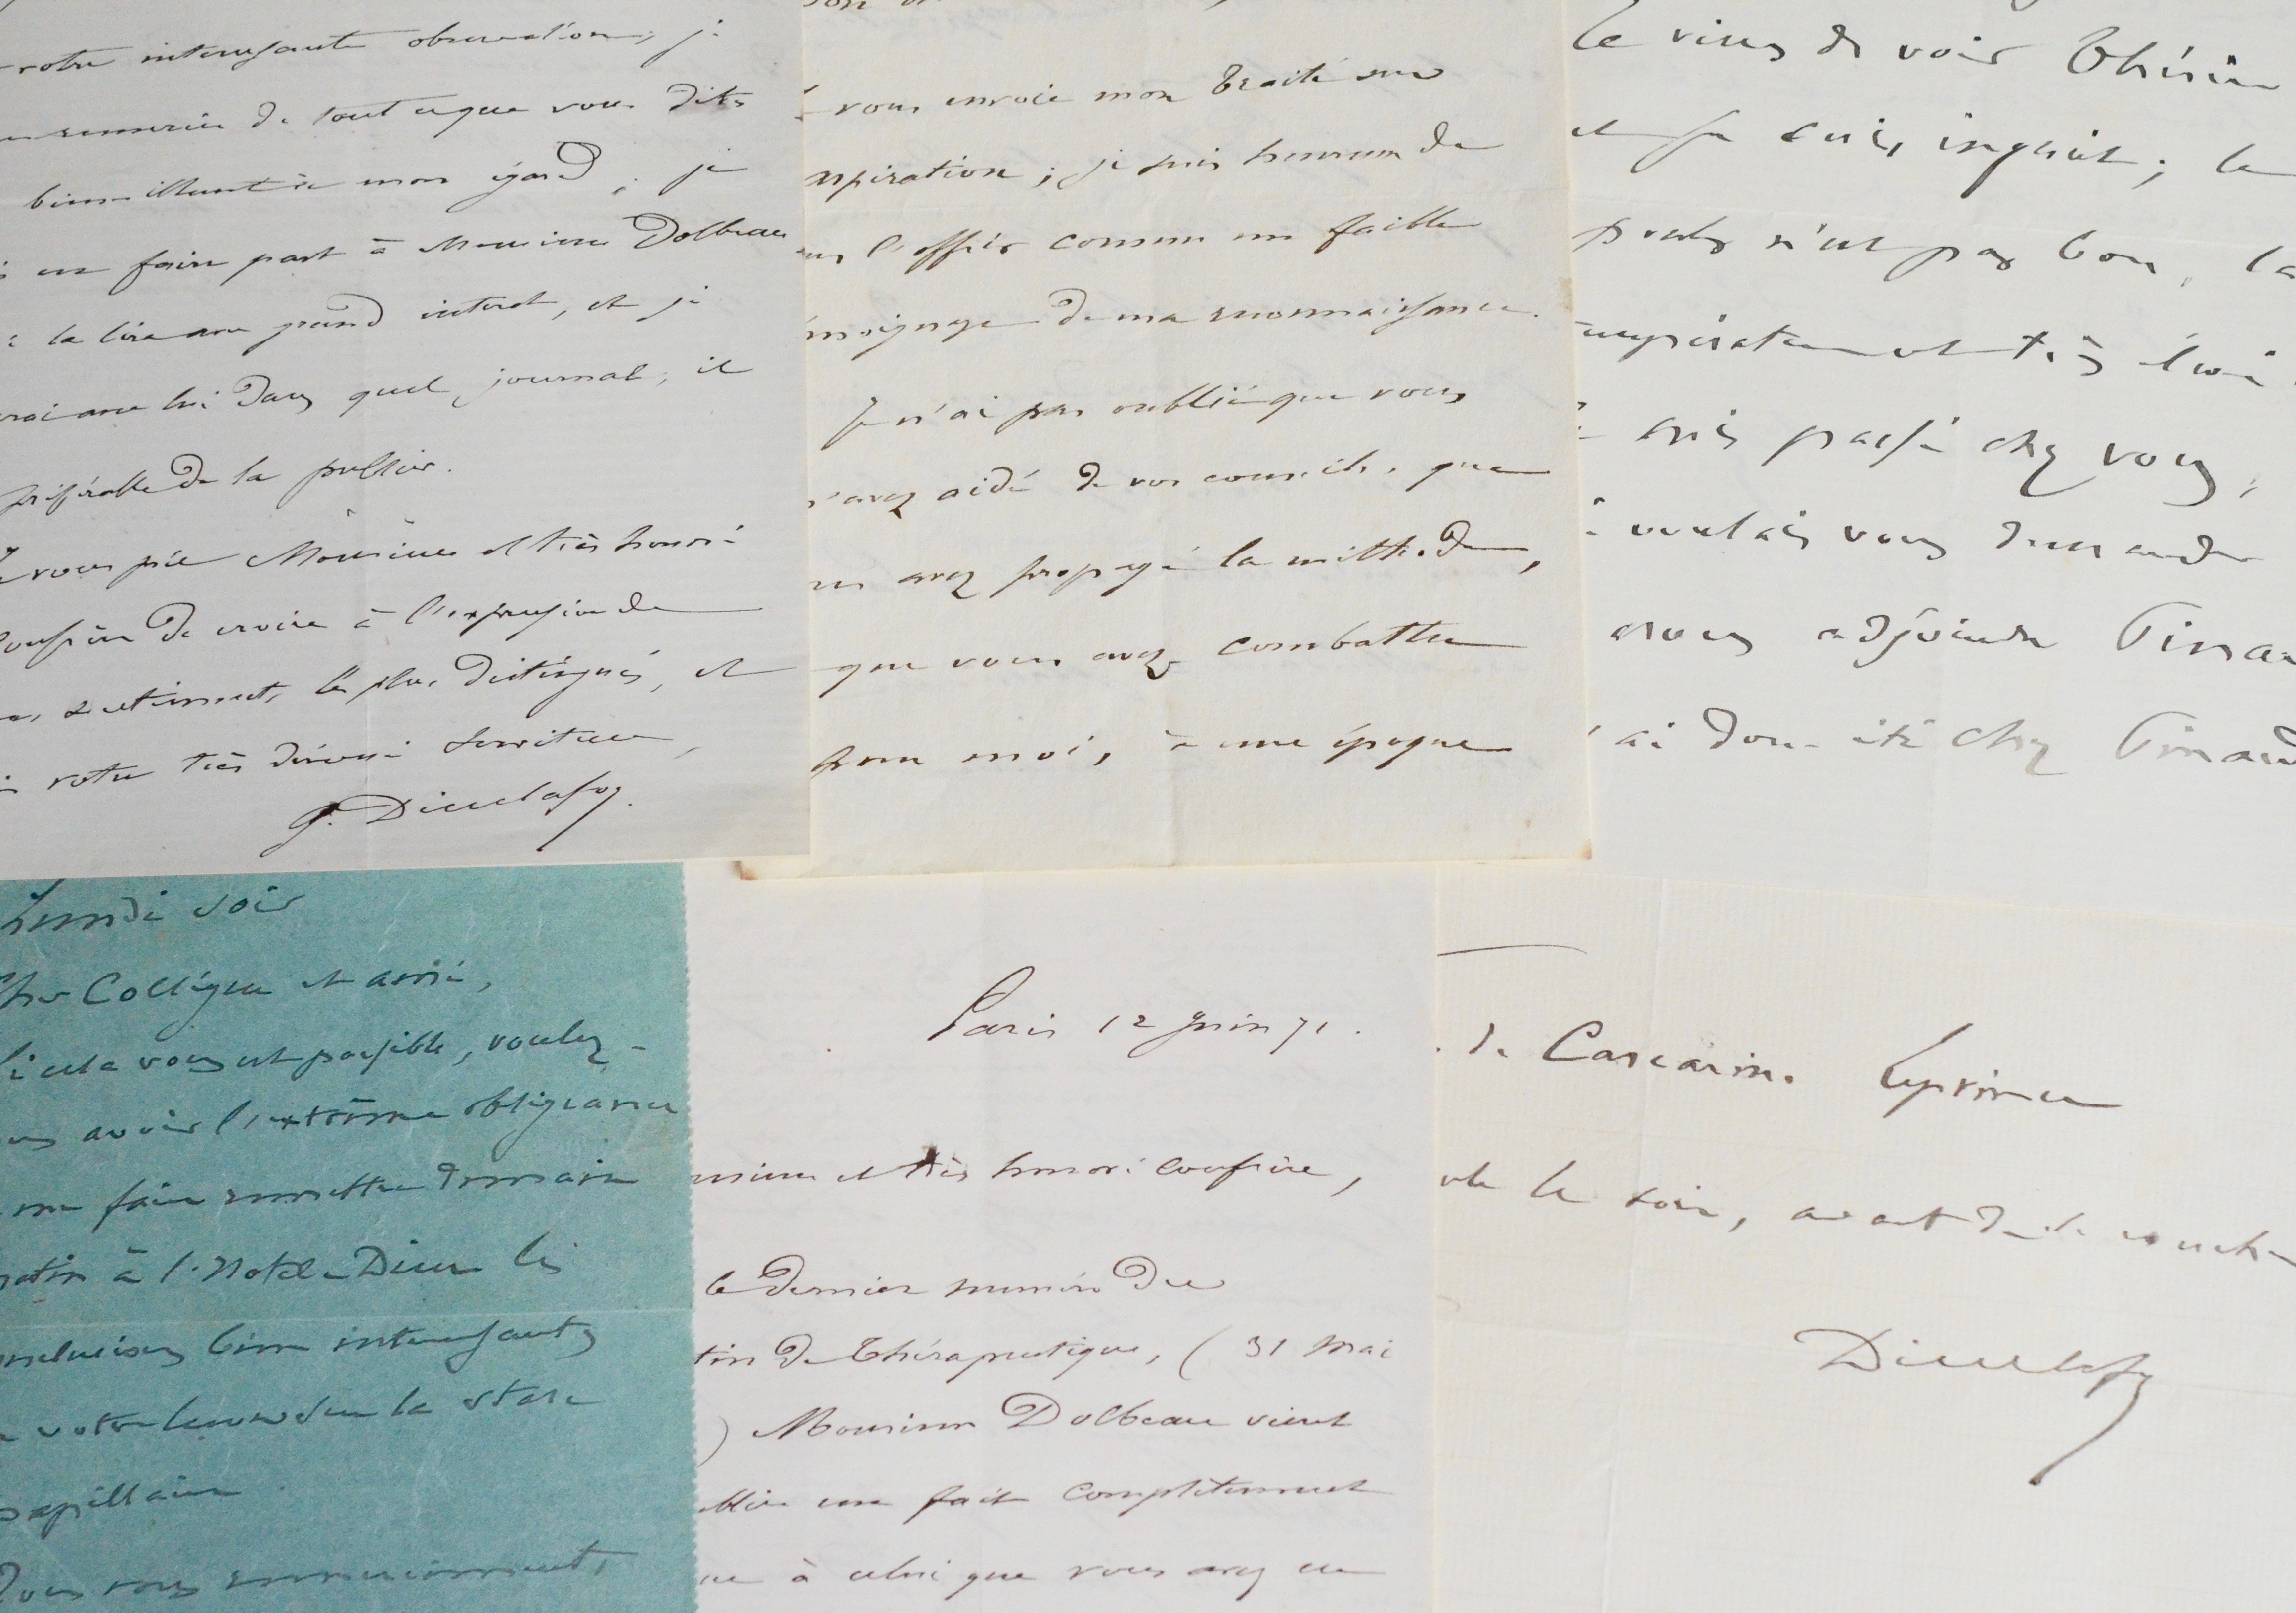 votre intéressante observation, je
remercie de tout ce que vous dites
bienveillant à mon égard; je
en faire part à Monsieur Dolbeau
la lira avec grand intérêt, et je
avec lui dans quel journal, il
préférable de la publier.
vous prie Monsieur et très honoré
Confrère de croire à l'expression de
sentiments les plus distingués, et
votre très dévoué serviteur,
G. Dieulafoy.
vous envoie mon Traité sur
aspiration; je suis heureux de
l'offrir comme un faible
témoignage de ma reconnaissance.
Je n'ai pas oublié que vous
m'avez aidé de vos conseils, que
avez propagé la méthode,
que vous avez combattu
pour moi, à une époque
Je viens de voir Thérèse
et je suis inquiet; le
pouls n'est pas bon, la
température est très élevée
suis passé chez vous,
voulais vous demander
adjoindre Pinard
ai donc été chez Pinard
Lundi soir
Cher Collègue et ami,
Si cela vous est possible, voulez-
avoir l'extrême obligeance
me faire remettre demain
matin à l'Hotel-Dieu les
conclusions bien intéressantes
votre sur la stase
papillaire
Paris 12 Juin 71.
Monsieur et très honoré Confrère,
le dernier numéro du
de Thérapeutique, (31 Mai
) Monsieur Dolbeau vient
publier un fait complètement
à celui que vous avez eu
de Cascarine Leprince
le soir, avant de se coucher
Dieulafoy